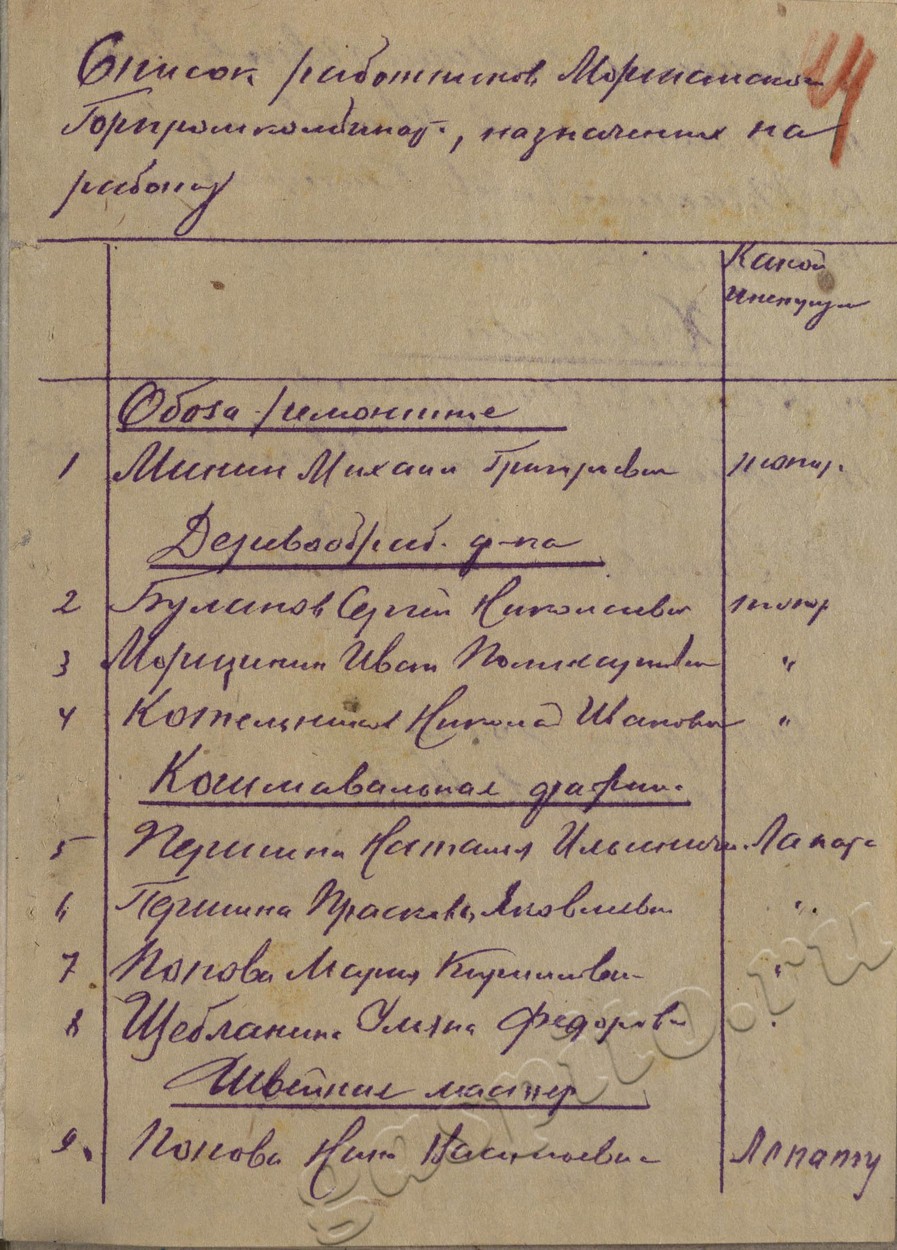 Список работников Моршанского
Горпромкомбината, назначенных на
работу
Какой
инструм
Обоза-ремонтные
1 Минин Михаил Григорьевич топор.
Деревообраб. ф-ка
2 Буланов Сергей Николаевич топор
3 Морщинин Иван Поликарпович "
4 Котельников Николай Иванович "
Кошмавальная фабрик.
5 Першина Наталия Ильинична Лапата
6 Першина Прасковья Яковлевна "
7 Попова Мария Кирилловна "
8 Щебланина Ульяна Федоровна "
Швейная мастер
9. Попова Нина Лапату
gaspito.ru